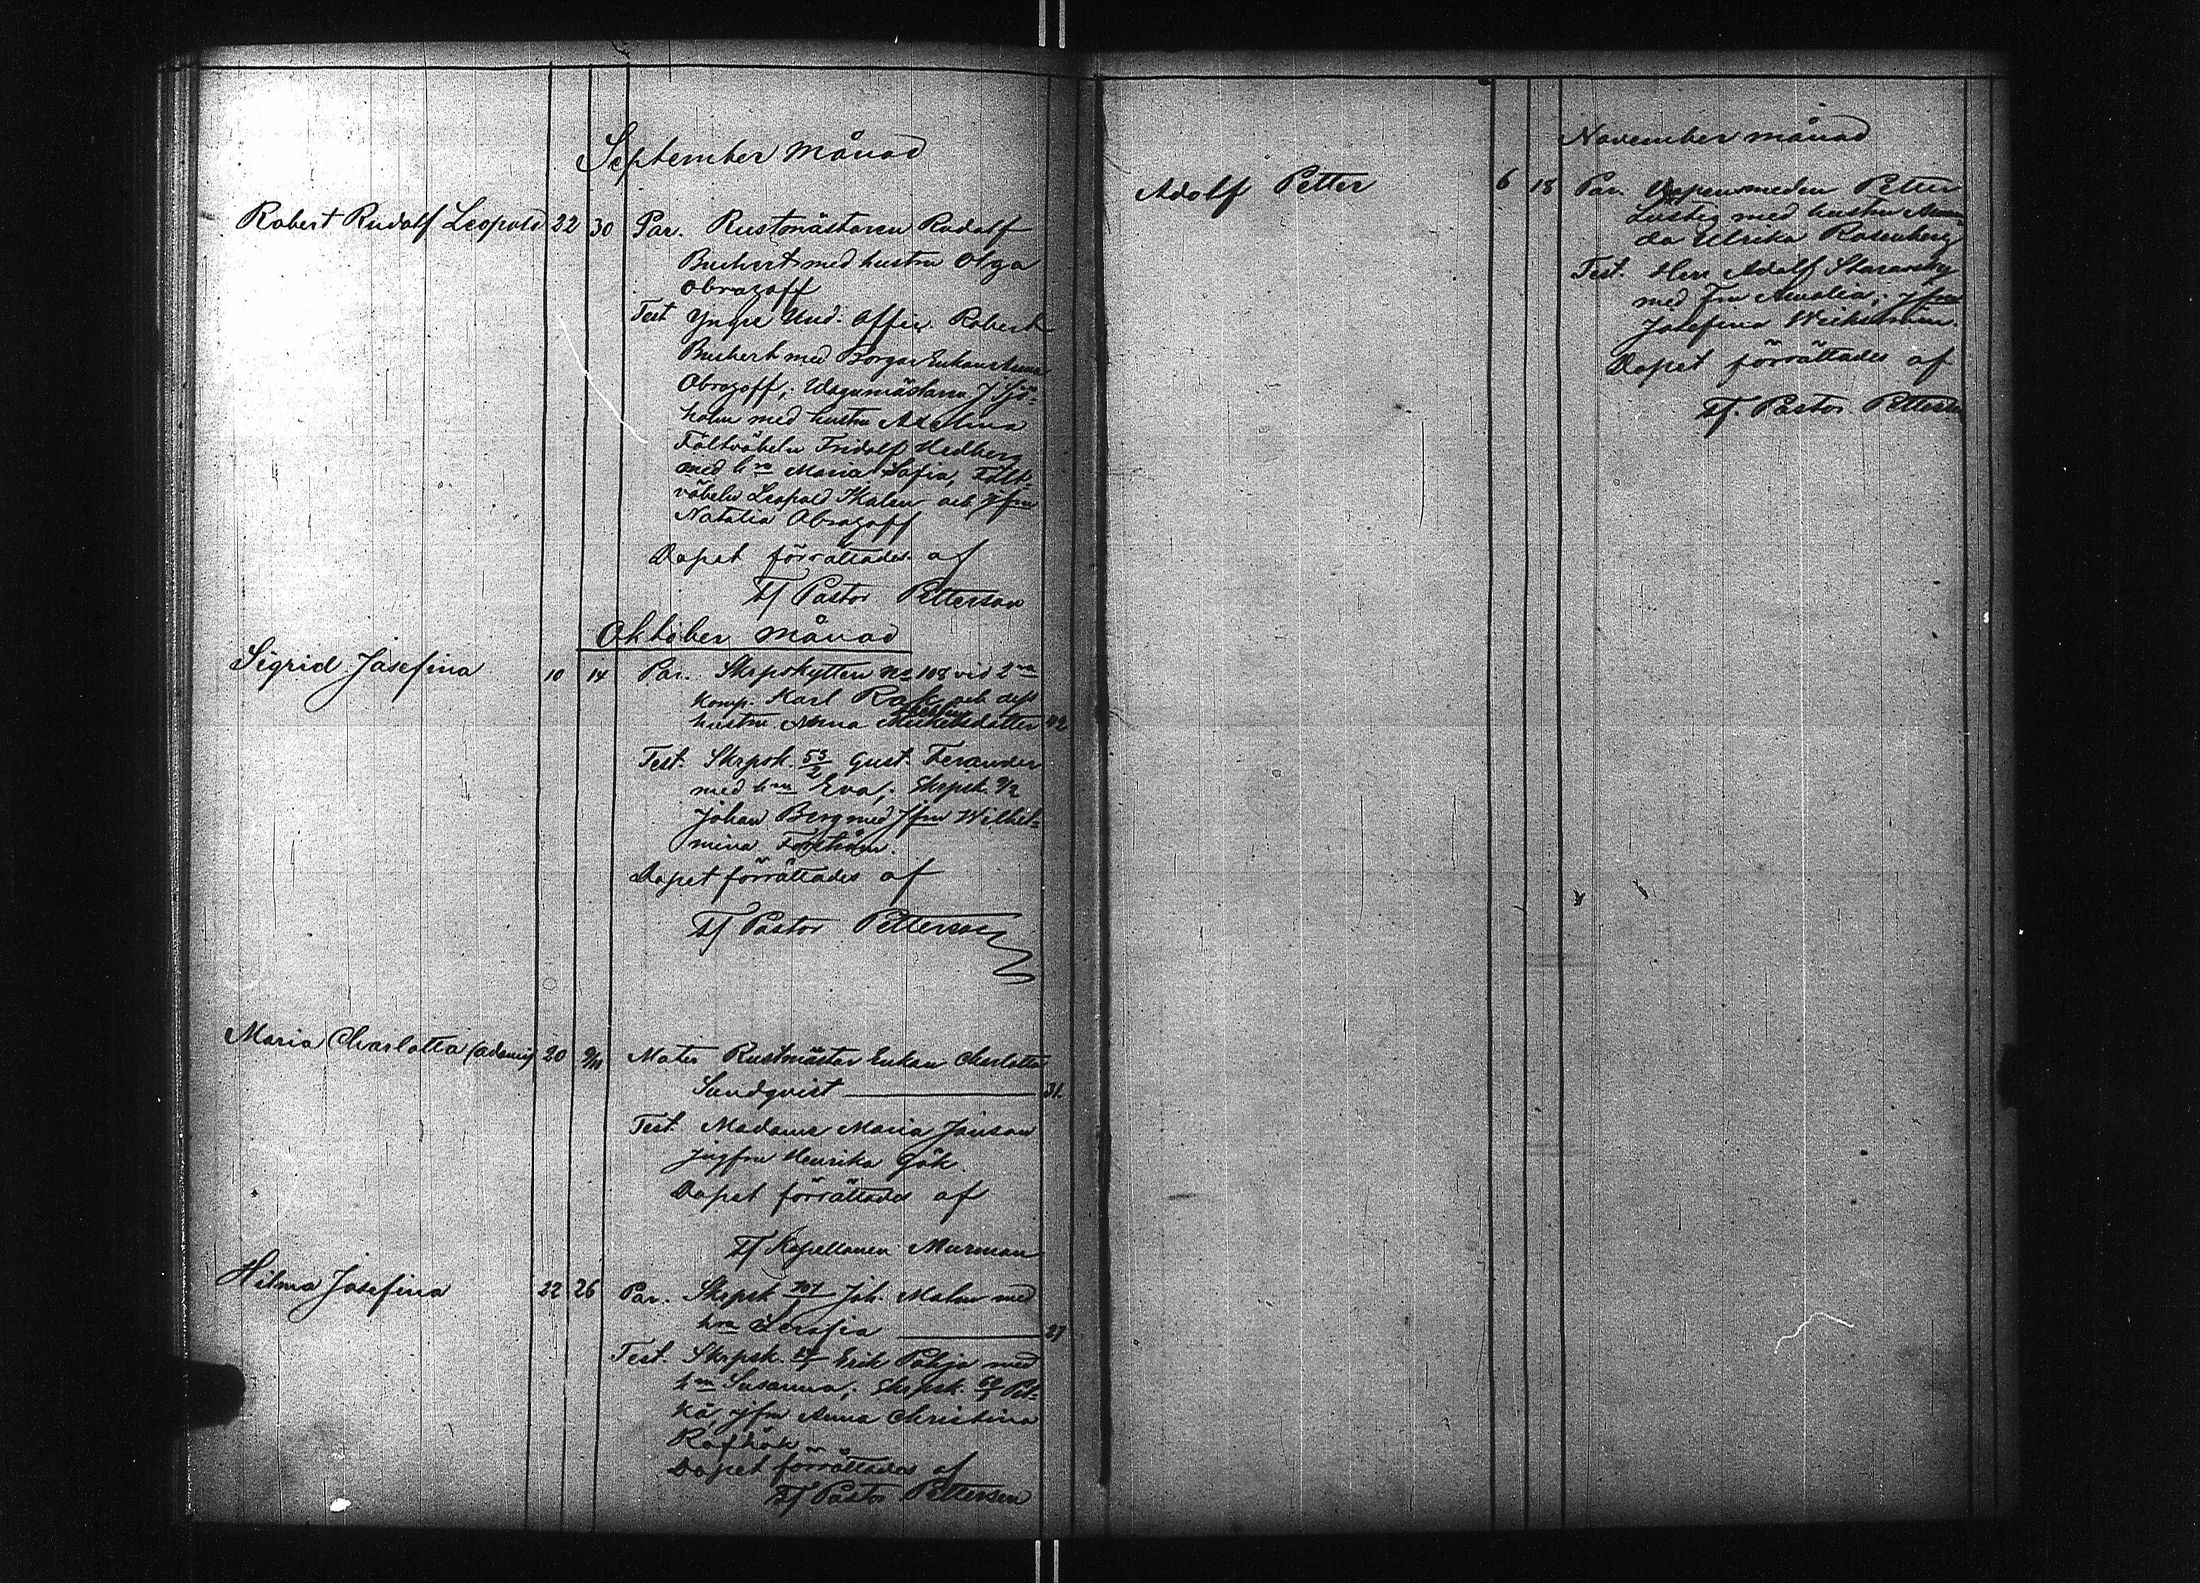 September månad
Robert Rudolf Leopold 22 30 Par. Rustmästaren Rudolf
Buchert med hustru Olga
Obrazoff
Test Yngre Und. Offic. Robert
Buchert med Borgar Enkan Anna
Obrazoff; Wagnmästaren J Sjö-
holm med hustru
Fältväbeln Fridolf Hedberg
med hru Maria Sofia, Fält-
väbeln Leopold Malm och Jfru
Natalia Obrazoff
Dopet förrättades af
Tf Pastor Petterson
Oktober månad
Sigrid Josefina 10 14 Par. Skrpskytten No 108 vid 2ra
Komp. Karl Rask och dess
hustru Anna Michelsdotter 42
Test. Skrpsk. 53/2 Gust. Ferander
med hru Eva; Skrpsk. 9/2
Johan Berg med Jfru Wilhel-
mina Forström.
Dopet förrättades af
Tf Pastor Petterson
Maria Charlotta (oäkta) 20 9/11 Mater Rustmästar Enkan Charlotta
Sundqvist 31.
Test. Madame Maria Janson
jngfru Henrika Gök.
Dopet förrättades af
Tf Kapellanen Murman
Hilma Josefina 22 26 Par. Skrpsk Joh. Malm med
hru Serafia 27
Test. Skrpsk. Erik Pohja med
hru Susanna; Skrpsk. Pit-
kä, jfru Anna Christina
Dopet förrättades af
Tf Pastor Petterson
November månad
Adolf Petter 6 18 Par. Petter
Lustig med hustru Aman-
da Ulrika Rosenberg
Test. Herr Adolf
med Fru Amalia; jfru
Josefina
Dopet förrättades af
Tf. Pastor Petterson